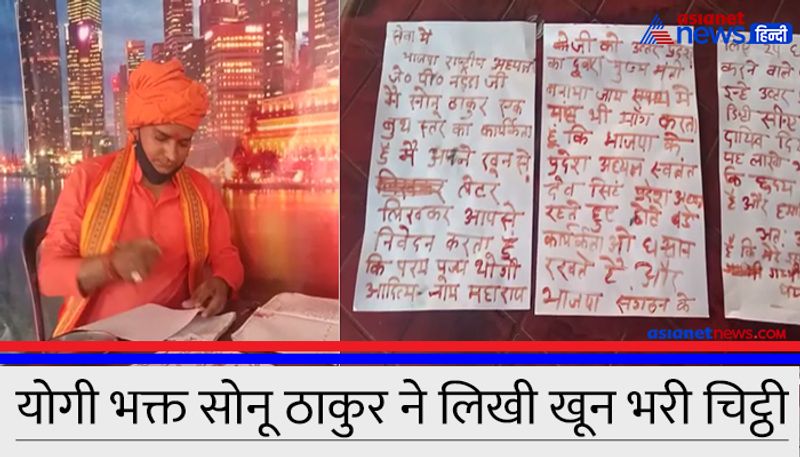 asianet
news हिन्दी
सेवा में
भाजपा राष्ट्रीय अध्यक्ष
जे० पी० नड्डा जी
मै सोनू ठाकुर एक
बुथ स्तर का कार्यकर्ता
हूँ मै अपने खून से
लेटर
लिखकर आपसे
निवेदन करता हूँ
कि परम पूज्य योगी
आदित्य नाथ महाराज
जी को उत्तर प्रदेश
का दुबारा मुख्य मंत्री
बनाया जाय
यह भी मांग करता
हूँ कि भाजपा के
प्रदेश अध्यक्ष स्वतंत्र
देव सिंह प्रदेश अध्यक्ष
रहते हुए छोटे बड़े
कार्यकर्ता ओ ध्यान
रखते है और
भाजपा संगठन के
करने वाले
इन्हे उत्तर
डिप्टी सीए
दायित्व दि
यह लाखो
कि हृदय
है और हमा
अतः
है कि मेरे
asianetnews.com
योगी भक्त सोनू ठाकुर ने लिखी खून भरी चिट्ठी